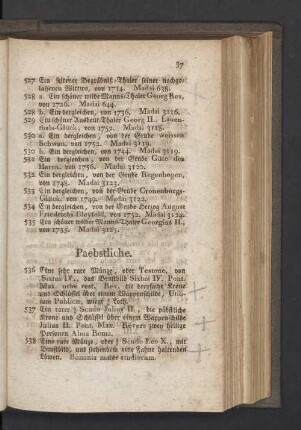 37
527 Ein silberner Begräbniß-Thaler seiner nachge-
lassenen Wittwe, von 1714. Madai 638.
528 a. Ein schöner wilde Manns-Thaler Georg Rex,
von 1726. Madai 644.
528 b. Ein dergleichen, von 1736. Madai 3116.
529 Ein schöner Ausbeut-Thaler Georg II.
Glück, von 1752. Madai 3118.
530 a. Ein dergleichen, von der Grube weissen
Schwan, von 1752. Madai 3119.
530 b. Ein dergleichen, von 1744. Madai 3119.
531 Ein dergleichen, von der Grube Güte des
Herrn, von 1756. Madai 3120.
532 Ein dergleichen, von der Grube Regenbogen,
von 1748. Madai 3123.
533 Ein dergleichen, von der Grube Cronenburgs-
Glück, von 1749. Madai 3122.
534 Ein dergleichen, von der Grube Herzog August
Friedrichs Bleyfeld, von 1752. Madai 3124.
535 Ein schöner wilder Manns-Thaler Georgius II.,
von 1735. Madai 3123.
Paebstliche.
536 Eine sehr rare Münze, oder Testone, von
Sixtus IV., das Brustbild Sixtus IV. Pont.
Max. Rev. die dreyfache Krone
und Schlüssel über einem Wappenschilde,
Publicae, wiegt Loth.
537 Ein rarer Scudo Julius II., die päbstliche
Krone und Schlüssel über einem Wappen-Schilde
Julius II. Pont. Max. Revers zwey heilige
Personen Alma Roma.
538 Eine rare Münze, oder ½ Scudo Leo X., mit
Brustbild, und stehenden eine Fahne haltenden
Löwen. Bononia mater studiorum.